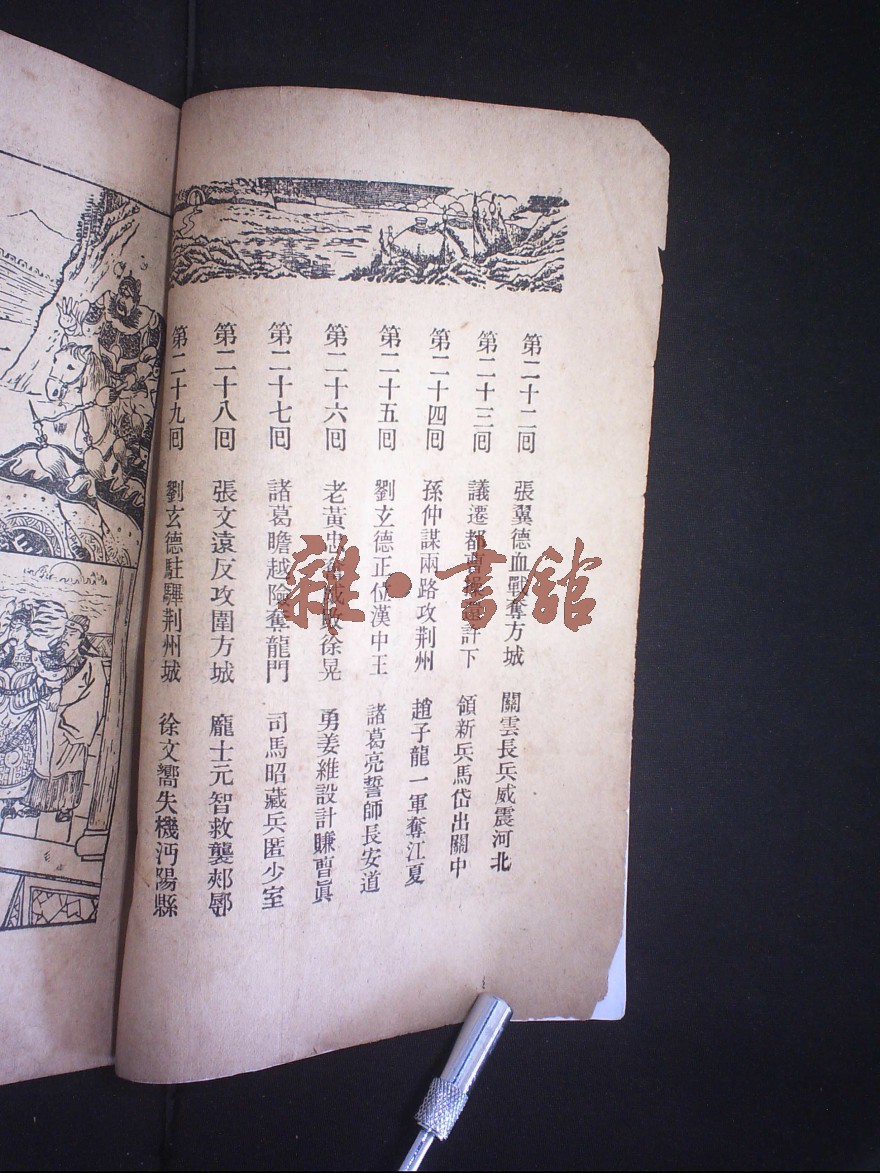 第二十二囘 張翼德血戰奪方城 關雲長兵威震河北
第二十三囘 議遷都曹操避許下 領新兵馬岱出關中
第二十四囘 孫仲謀兩路攻荆州 趙子龍一軍奪江夏
第二十五囘 劉玄德正位漢中王 諸葛亮誓師長安道
第二十六囘 老黃忠 徐晃 勇姜維設計賺曹眞
第二十七囘 諸葛瞻越險奪龍門 司馬昭藏兵匿少室
第二十八囘 張文遠反攻圍方城 龐士元智救襲郟鄏
第二十九囘 劉玄德駐驆荆州城 徐文嚮失機沔陽縣
雜·書舘